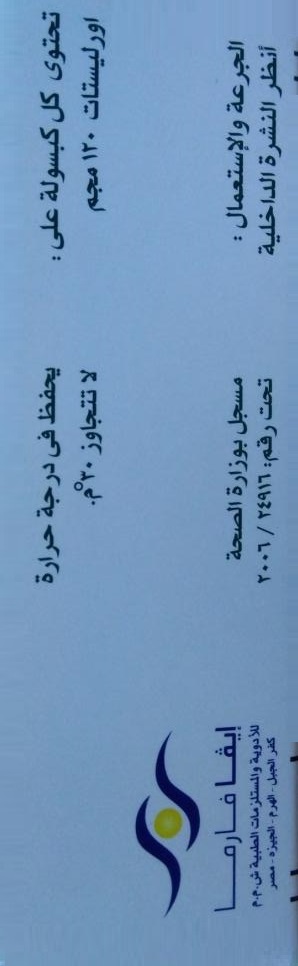 تحتوى كل كبسولة على :
اورليستات ١٢٠ مجم
الجرعة والإستعمال :
أنظر النشرة الداخلية
يحفظ فى درجة حرارة
لا تتجاوز ٣٠°م.
مسجل بوزارة الصحة
تحت رقم: ٢٤٩١٦ / ٢٠٠٦
إيڤا فارما
للأدوية والمستلزمات الطبية ش.م.م
كفر الجبل - الهرم - الجيزه - مصر